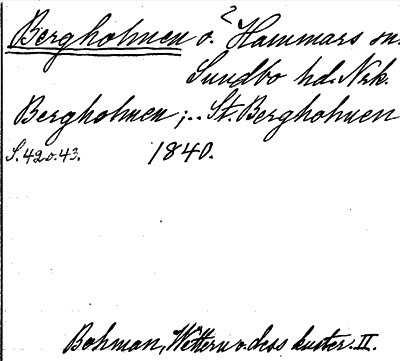 Bergholmen ö. ? Hammars sn.
Sundbo hd. Nrk.
Bergholmen ; .. St. Bergholmen
S. 42 o. 43. 1840.
Bohman, Wettern o. dess kuster. II.